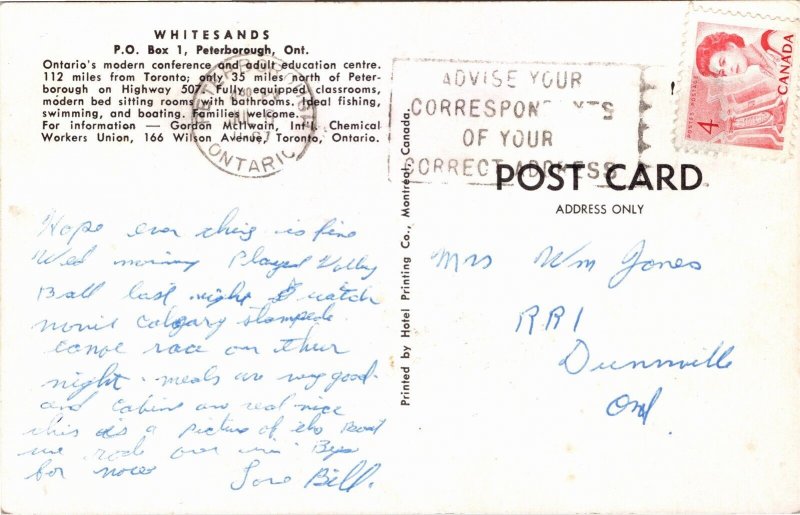 WHITESANDS
P.O. Box 1, Peterborough, Ont.
Ontario's modern conference and adult education centre.
112 miles from Toronto; only 35 miles north of Peter-
borough on Highway 507. Fully equipped classrooms,
modern bed sitting rooms with bathrooms. Ideal fishing,
swimming, and boating. Families welcome.
For information — Gordon McIlwain, Int'l. Chemical
Workers Union, 166 Wilson Avenue, Toronto, Ontario.
PETERBOROUGH
ONTARIO
ADVISE YOUR
CORRESPONDENTS
OF YOUR
CORRECT ADDRESS
POSTES POSTAGE
4
CANADA
POST CARD
ADDRESS ONLY
Printed by Hotel Printing Co., Montreal, Canada.
Hope ever thing is fine
Wed morning Played Volley
Ball last night & watch
movie Calgary stampede.
Canoe race on Thur
night. meals are very good.
and cabins are real nice
this is a picture of the Boat
we rode over in. Bye
for now Love Bill.
Mrs Wm Jones
RR1
Dunnville
Ont